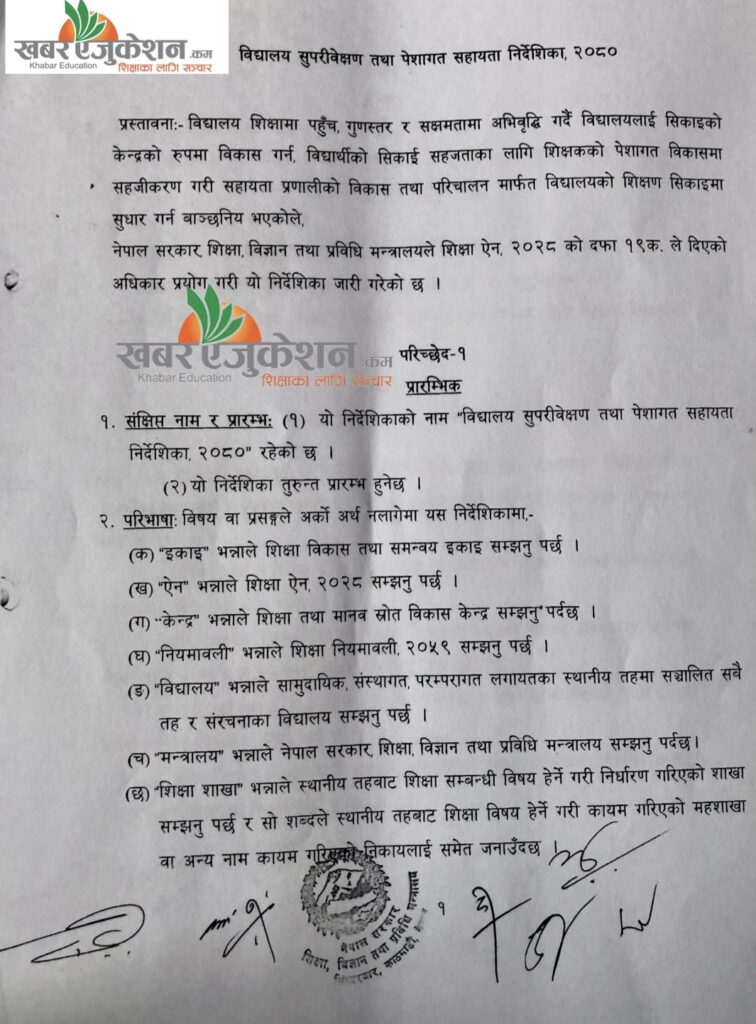 खबर एजुकेशन.कम
Khabar Education
शिक्षाका लागि सञ्चार
विद्यालय सुपरीवेक्षण तथा पेशागत सहायता निर्देशिका, २०८०
प्रस्तावना:- विद्यालय शिक्षामा पहुँच, गुणस्तर र सक्षमतामा अभिवृद्धि गर्दै विद्यालयलाई सिकाइको
केन्द्रको रुपमा विकास गर्न, विद्यार्थीको सिकाई सहजताका लागि शिक्षकको पेशागत विकासमा
सहजीकरण गरी सहायता प्रणालीको विकास तथा परिचालन मार्फत विद्यालयको शिक्षण सिकाइमा
सुधार गर्न बाञ्छनिय भएकोले,
नेपाल सरकार, शिक्षा, विज्ञान तथा प्रविधि मन्त्रालयले शिक्षा ऐन, २०२८ को दफा १९क. ले दिएको
अधिकार प्रयोग गरी यो निर्देशिका जारी गरेको छ ।
खबर एजुकेशन.कम
Khabar Education
शिक्षाका लागि सञ्चार
परिच्छेद-१
प्रारम्भिक
१. संक्षिप्त नाम र प्रारम्भ: (१) यो निर्देशिकाको नाम "विद्यालय सुपरीवेक्षण तथा पेशागत सहायता
निर्देशिका, २०८०" रहेको छ ।
(२) यो निर्देशिका तुरुन्त प्रारम्भ हुनेछ ।
२. परिभाषा: विषय वा प्रसङ्गले अर्को अर्थ नलागेमा यस निर्देशिकामा,-
(क) "इकाइ" भन्नाले शिक्षा विकास तथा समन्वय इकाइ सम्झनु पर्छ ।
(ख) "ऐन" भन्नाले शिक्षा ऐन, २०२८ सम्झनु पर्छ ।
(ग) "केन्द्र" भन्नाले शिक्षा तथा मानव स्रोत विकास केन्द्र सम्झनु पर्दछ ।
(घ) "नियमावली" भन्नाले शिक्षा नियमावली, २०५९ सम्झनु पर्छ ।
(ङ) "विद्यालय" भन्नाले सामुदायिक, संस्थागत, परम्परागत लगायतका स्थानीय तहमा सञ्चालित सबै
तह र संरचनाका विद्यालय सम्झनु पर्छ ।
(च) "मन्त्रालय" भन्नाले नेपाल सरकार, शिक्षा, विज्ञान तथा प्रविधि मन्त्रालय सम्झनु पर्दछ।
(छ) "शिक्षा शाखा" भन्नाले स्थानीय तहबाट शिक्षा सम्बन्धी विषय हेर्ने गरी निर्धारण गरिएको शाखा
सम्झनु पर्छ र सो शब्दले स्थानीय तहबाट शिक्षा विषय हेर्ने गरी कायम गरिएको महशाखा
वा अन्य नाम कायम गरिएको निकायलाई समेत जनाउँदछ ।
नेपाल सरकार
शिक्षा, विज्ञान तथा प्रविधि मन्त्रालय
सिंहदरबार, काठमाडौं,
१